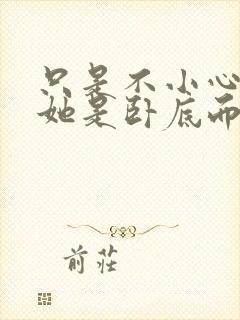 只是不小心
她是卧底而
前莊